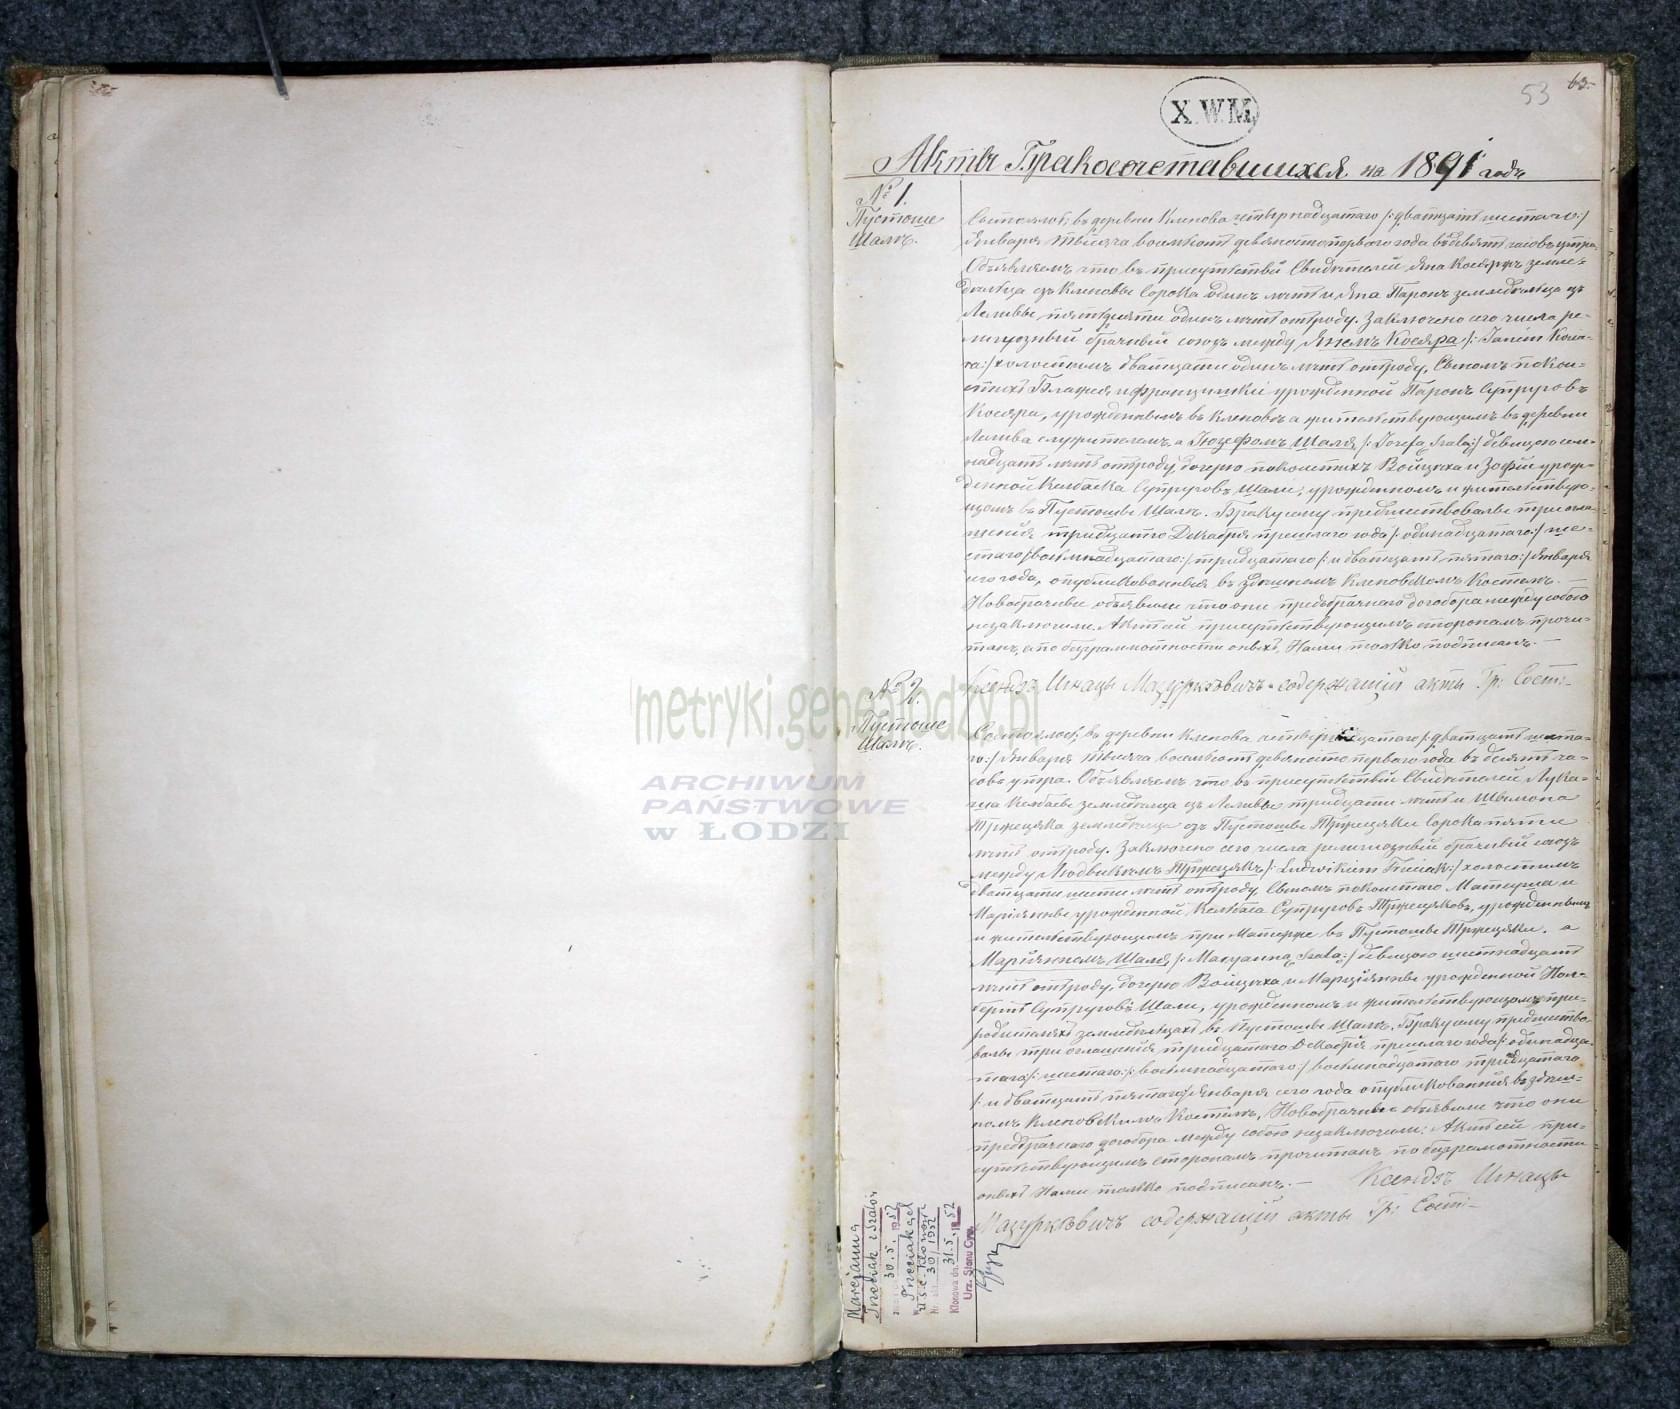 53
63.
X.W.M.
Акты Бракосочетавшихся на 1891 годъ
№ 1.
Пустоше
Шалъ.
Состоялось въ деревни Кленова четырнадцатаго /: двадцать шестаго:/
Января тысяча восемьсотъ девяносто перваго года въ девять часовъ утра.
Объявляемъ что въ присутствіи Свидѣтелей, Яна Косяра земле-
дѣльца изъ Кленовы Сорока одинъ лѣтъ и Яна Паронъ земледѣльца изъ
Леливы пятьдесяти одинъ лѣтъ отроду. Заключено сего числа ре-
лигіозный брачный союзъ между Янемъ Косяра /: Janem Kosia-
ra:/ холостымъ двадцати одинъ лѣтъ отроду, Сыномъ покой-
ныхъ Блажея и Францишки урожденной Паронъ Супруговъ
Косяра, урожденнымъ въ Кленовѣ а жительствующимъ въ деревни
Лелива служителемъ а Іозефомъ Шаля /: Józefą Szalą:/ девицою сем-
надцать лѣтъ отроду, дочерю покойныхъ Войцѣха и Зофіи урож-
денной Келбаска Супруговъ Шали, урожденномъ и жительствую-
щомъ въ Пустоше Шалъ. Браку сему предшествовалы три огла-
шенія тридцатго Декабря прошлаго года /: одинадцатаго:/ ше-
стаго /: восемнадцатаго:/ тридцатаго /: и двадцать пятаго:/ Января
сего года, опубликованныя въ здешнемъ Кленовскомъ Костелѣ. —
Новобрачные объявили что они предбрачнаго договора между собою
незаключили. Актъ сей присутствующимъ сторонамъ прочи-
танъ, а по безграмотности оныхъ, Нами только подписанъ. —
Ксендзъ Игнацы Мазуркевичъ содержащій акты Гр: Сост:
№ 2.
Пустоше
Шалъ.
Состоялось въ деревни Кленова четырнадцатаго /: двадцать шеста-
го:/ Января тысяча восемьсотъ девяносто перваго года въ десять ча-
совъ утра. Объявляемъ что въ присутствіи Свидѣтелей Лука-
земледѣльца изъ Леливы тридцати лѣтъ и Шимона
Тржецяка земледѣльца изъ Пустоше Тржецяки Сорока пяти
лѣтъ отроду. Заключено сего числа религіозный брачный союзъ
между Людвикомъ Тржецякъ /: Ludwikiem Trzeciak:/ холостымъ
двадцати шести лѣтъ отроду, Сыномъ покойнаго Матеуша и
Маріянны урожденной Келбаса Супруговъ Тржецяковъ, урожденнымъ
и жительствующимъ при Матерже въ Пустоше Тржецяки. а
Маріянномъ Шаля /: Maryanną Szalą:/ девицою шестнадцать
лѣтъ отроду, дочерю Войцѣха и Марціянны урожденной
Супруговъ Шали, урожденномъ и жительствующомъ при
родителяхъ земледѣльцахъ въ Пустоше Шалъ. Браку сему предшество-
валы три оглашенія тридцатаго Декабря прошлаго года /: одинадца-
таго:/ шестаго /: восемнадцатаго:/ восемнадцатаго тридцатаго
/: и двадцать пятаго:/ Января сего года опубликованныя въ здеш-
номъ Кленовскимъ Костелѣ, Новобрачные объявили что они
предбрачнаго договора между собою незаключили: Актъ сей при-
сутствующимъ сторонамъ прочитанъ по безграмотности
оныхъ Нами только подписанъ. — Ксендзъ Игнацы
Мазуркевичъ содержащій акты Гр: Сост:
Marcjanna
Trzeciak z Szalów
30.5. 1952
w Trzeciakach
U.S.C. Klonowa
Nr 30/1952
Klonowa dn. 31.5. 1952
Urz. Stanu Cyw.
metryki.genealodzy.pl
ARCHIWUM
PAŃSTWOWE
w ŁODZI